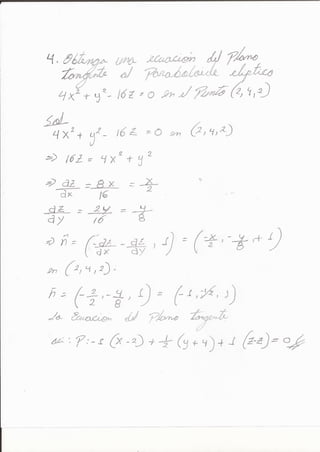 4. Obtenga una ecuación del Plano
tangente al Paraboloide eliptico
4x² + y² - 16z = 0 en el Punto (2,4,2)
Sol
4x² + y² - 16z = 0 en (2,4,2)
=> 16z = 4x² + y²
=> dz/dx = 8x/16 = x/2
dz/dy = 2y/16 = y/8
=> n̄ = (-dz/dx, -dz/dy, 1) = (-x/2, -y/8, +1)
en (2,4,2).
n̄ = (-2/2, -4/8, 1) = (-1, -1/2, 1)
La Ecuacion del Plano tangente
es: P: -1 (x-2) + 1/2 (y+4) + 1 (z-2) = 0